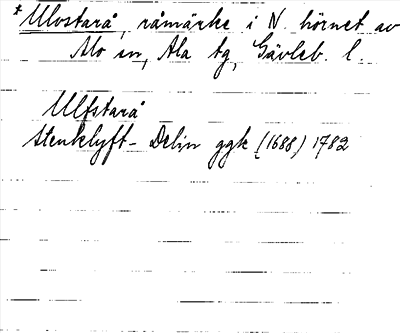 * Ulvstarå, råmärke i N. hörnet av
Mo sn, Ala tg, Gävleb. l.
Ulfstarå
Stenklyft- Delin ggk (1688) 1782